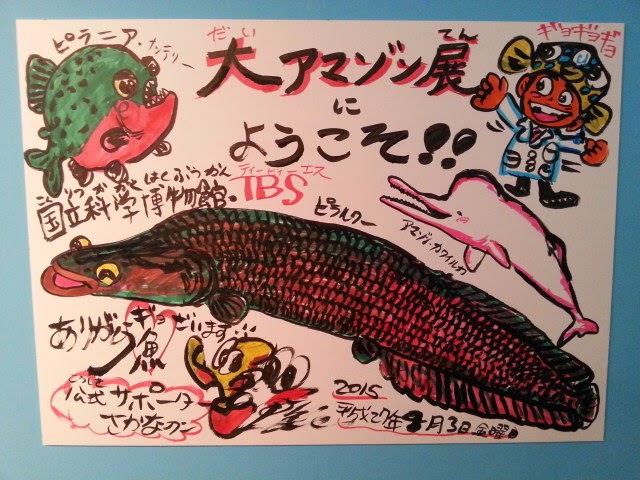 ピラニア・ナッテリー
だい てん
大アマゾン展
に
ようこそ!!
ギョギョギョ
こくりつかがくはくぶつかん
国立科学博物館・
ティービーエス
TBS
ピラルクー
アマゾンカワイルカ
ギョ
ありがとうございます…
魚
こうしき
公式サポーター
さかなクン
2015
平成27年4月3日金曜日